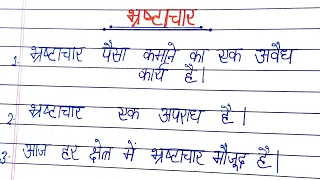 भ्रष्टाचार
1. भ्रष्टाचार पैसा कमाने का एक अवैध
कार्य है।
2. भ्रष्टाचार एक अपराध है।
3. आज हर क्षेत्र में भ्रष्टाचार मौजूद है।